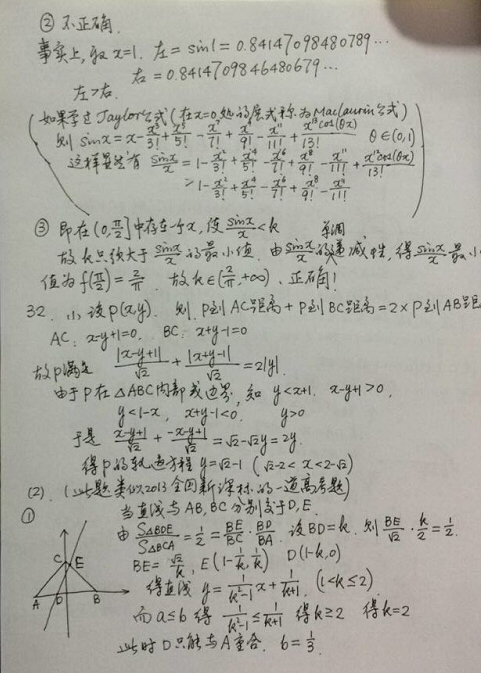 ② 不正确.
事实上,取 x=1. 左=sin1=0.84147098480789...
右=0.8414709846480679...
左>右.
(如果学过Taylor公式(在x=0处的展式称为Maclaurin公式)
则 sinx=x-x³/3!+x⁵/5!-x⁷/7!+x⁹/9!-x¹¹/11!+x¹³cos(θx)/13! θ∈(0,1)
这样显然有 sinx/x=1-x²/3!+x⁴/5!-x⁶/7!+x⁸/9!-x¹¹/11!+x¹²cos(θx)/13!
>1-x²/3!+x⁴/5!-x⁶/7!+x⁸/9!-x¹¹/11!
③ 即在(0,π/2]中存在一个x,使 sinx/x<k
故k只须大于 sinx/x 的最小值. 由 sinx/x 的单调递减性,得 sinx/x 最小
值为f(π/2)=2/π. 故k∈(2/π,+∞). 正确!
32. 小设P(x,y). 则P到AC距离+P到BC距离=2×P到AB距
AC: x-y+1=0. BC: x+y-1=0
故P满足 |x-y+1|/√2+|x+y-1|/√2=2|y|.
由于P在△ABC内部或边界,知 y<x+1. x-y+1>0.
y<1-x, x+y-1<0. y>0
于是 x-y+1/√2+-x-y+1/√2=√2-√2y=2y.
得P的轨迹方程 y=√2-1 (√2-2<x<2-√2)
(2). (此题类似2013全国新课标的一道高考题)
① 当直线与AB,BC分别交于D,E.
由 S△BDE/S△BCA=1/2=BE/BC·BD/BA. 设BD=k. 则 BE/√2·k/2=1/2.
BE=√2/k, E(1-1/k,1/k) D(1-k,0)
C E A O B
得直线 y=1/(k²-1)x+1/(k+1). (1<k≤2)
而a≤b 得 1/(k²-1)≤1/(k+1) 得k≥2 得k=2
此时D只能与A重合. b=1/3.